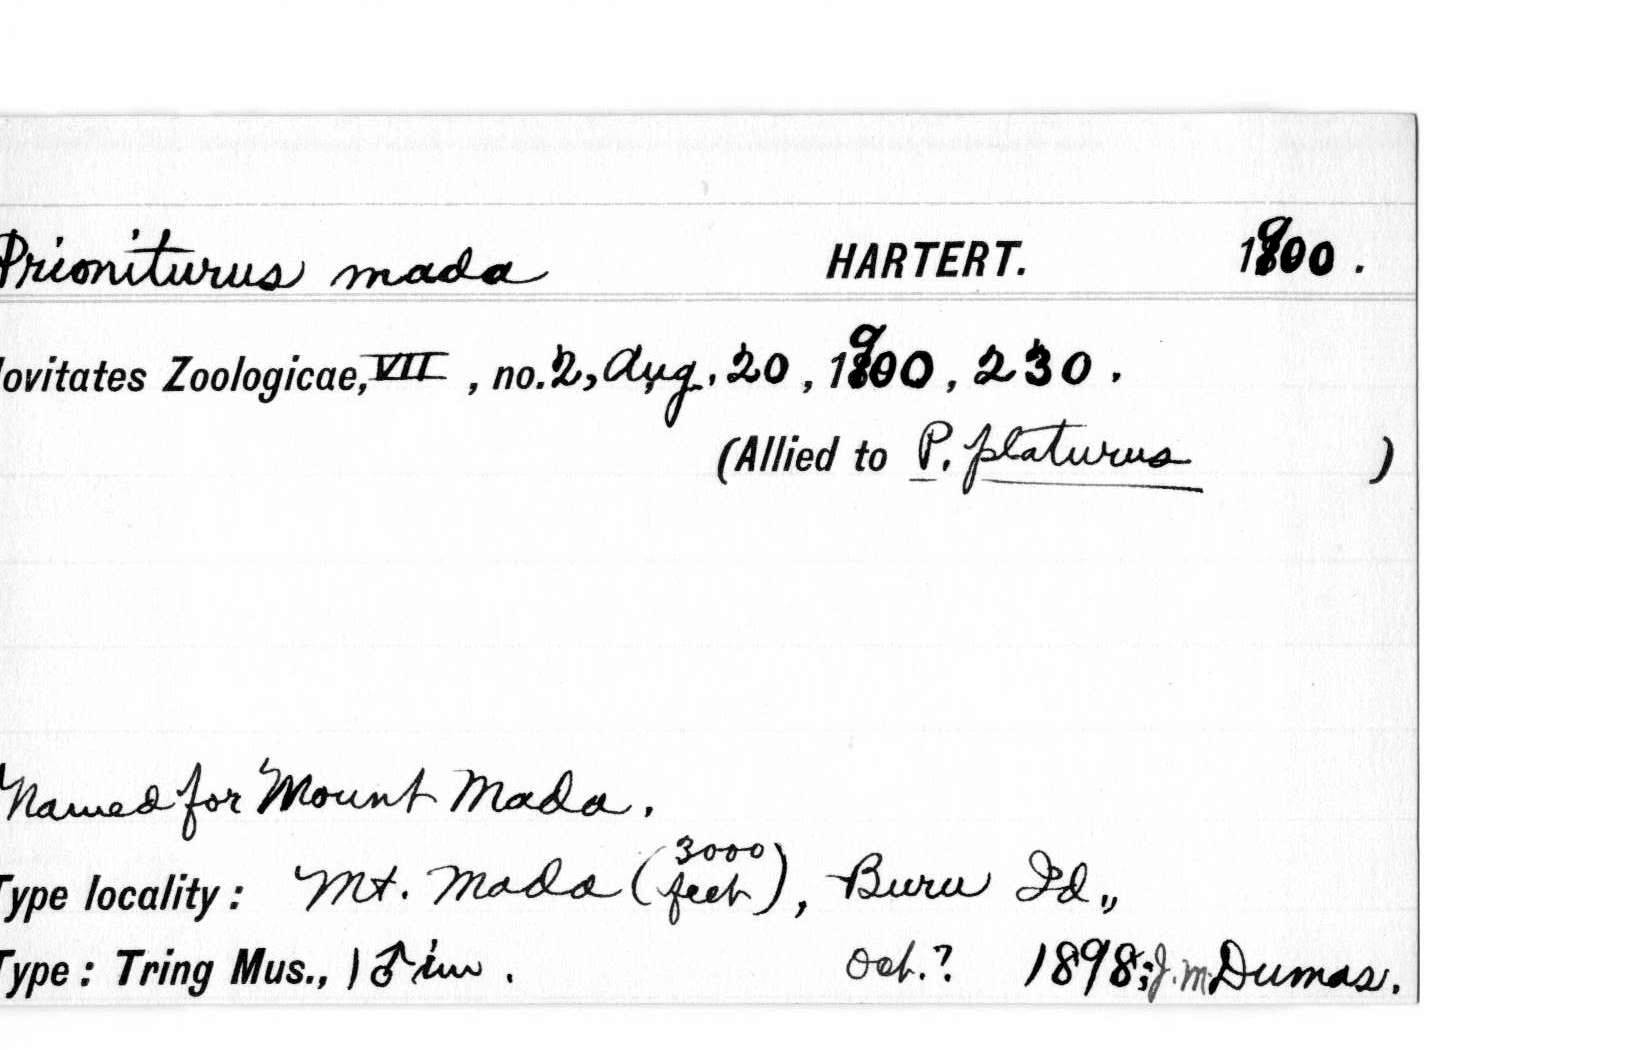 Prioniturus mada HARTERT. 1900.
ovitates Zoologicae, VII, no. 2, Aug. 20, 1900, 230.
(Allied to P. platurus )
Named for Mount Mada.
Type locality: Mt. Mada (3000 feet), Buru Id.,
Type: Tring Mus., 1 ♂ im. Oct.? 1898; J. M. Dumas.